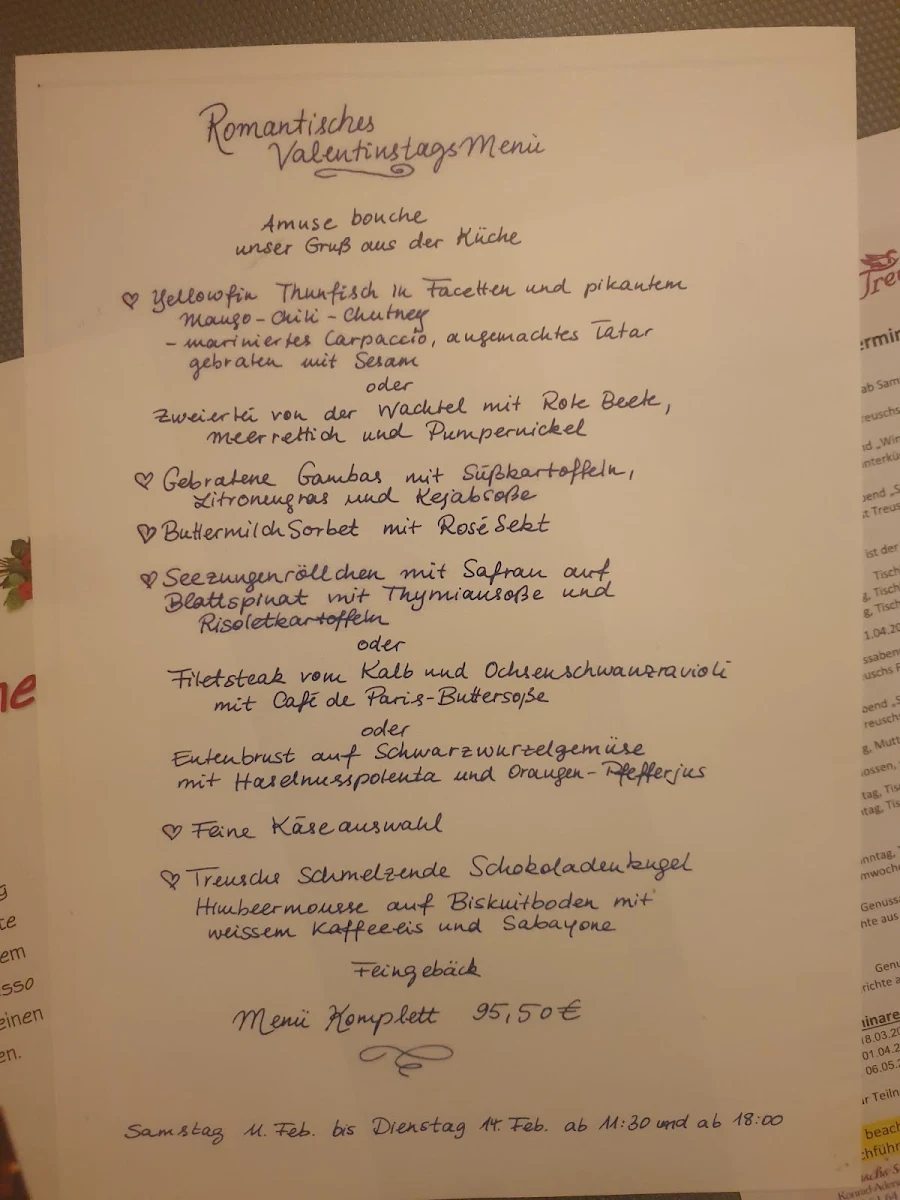 Romantisches
ValentinstagsMenü
Amuse bouche
unser Gruß aus der Küche
♡ Yellowfin Thunfisch in Facetten und pikantem
Mango-Chili-Chutney
- mariniertes Carpaccio, angemachtes Tatar
gebraten mit Sesam
oder
Zweierlei von der Wachtel mit Rote Beete,
Meerrettich und Pumpernickel
♡ Gebratene Gambas mit Süßkartoffeln,
Zitronengras und Kejabsoße
♡ Buttermilch Sorbet mit Rosé Sekt
♡ Seezungenröllchen mit Safran auf
Blattspinat mit Thymiansoße und
Risoletkartoffeln
oder
Filetsteak vom Kalb und Ochsenschwanzravioli
mit Café de Paris-Buttersoße
oder
Entenbrust auf Schwarzwurzelgemüse
mit Haselnusspolenta und Orangen-Pfefferjus
♡ Feine Käseauswahl
♡ Treuschs Schmelzende Schokoladenkugel
Himbeermousse auf Biskuitboden mit
weissem Kaffeeeis und Sabayone
Feingebäck
Menü Komplett 95,50€
Samstag 11. Feb. bis Dienstag 14. Feb. ab 11:30 und ab 18:00
em
einen
en.
ab Sam
ist der
Tisch
g, Tisch
g, Tisch
1.04.20
g, Mutt
18.03.20
01.04.2
06.05.2